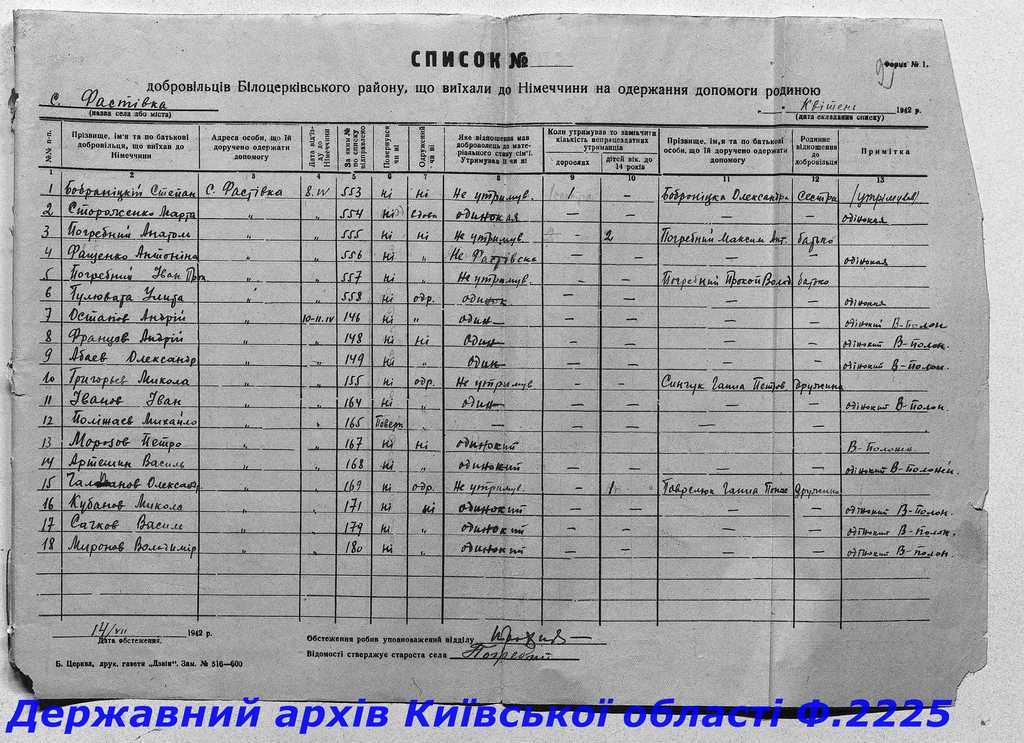 СПИСОК №
Форма № 1.
добровільців Білоцерківського району, що виїхали до Німеччини на одержання допомоги родиною
с. Фастівка
(назва села або міста)
Квітень 1942 р.
(дата складання списку)
№№ п-п. Прізвище, ім'я та по батькові добровільця, що виїхав до Німеччини Адреса особи, що їй доручено одержати допомогу Дата від'їзду до Німеччини За яким № по списку відправлено Повернувся чи ні Одружений чи ні Яке відношення мав доброволець до матеріального стану сім'ї. Утримував її чи ні Коли утримував то зазначити кількість непрацездатних утриманців дорослих дітей вік. до 14 років Прізвище, ім'я та по батькові особи, що їй доручено одержати допомогу Родинне відношення до добровільця Примітка
1 2 3 4 5 6 7 8 9 10 11 12 13
1 Бобраніцкий Степан С. Фастівка 8.IV 553 ні ні Не утримув. 1 — Бобраніцка Олександра Сестра
2 Стороженко Марта " " 554 ні одинокая — — — — одінокая
3 Погребний Анатол " " 555 ні ні Не утримув. - 2 Погребний Максим Ант. батько
4 Фащенко Антоніна " " 556 ні " — — — — одінокая
5 Погребний Іван " " 557 ні " Не утримув. - — Погребний батько
6 Гулювата Улита " " 558 ні одр. одинок — — — — одінокая
7 Остапов Андрій " 10-11.IV 146 ні " один— — — — — одінокий В-Полон
8 Францев Андрій " " 148 ні ні один— — — — — одінокий В-Полон.
9 Абаев Олександр " " 149 ні " один— — — — — одінокий В-Полон.
10 Григорьев Микола " " 155 ні одр. Не утримув - - Синчук Ганна Петров дружина
11 Іванов Іван " " 164 ні " один— — — — — одінокий В-Полон.
12 Михайло " " 165 Поверн " — — — — —
13 Морозов Петро " " 167 ні ні одинокий В-Полон.
14 Артешин Василь " " 168 ні " одинокий — — — — одінокий В-Полон.
15 Олександр " " 169 ні одр. Не утримув. - 1 Ганна дружина
16 Кубанов Микола " " 171 ні ні одинокий — — — — одінокий В-Полон.
17 Сачков Васил " " 179 ні " одинокий — — — — одінокий В-Полон.
18 Миронов Володимір " " 180 ні " одинокий — — — — одінокий В-Полон.
14/VII 1942 р.
Дата обстеження.
Обстеження робив уповноважений відділу
Відомості стверджує староста села Погребний
Б. Церква, друк. газети „Дзвін“. Зам. № 516—600
Державний архів Київської області Ф.2225